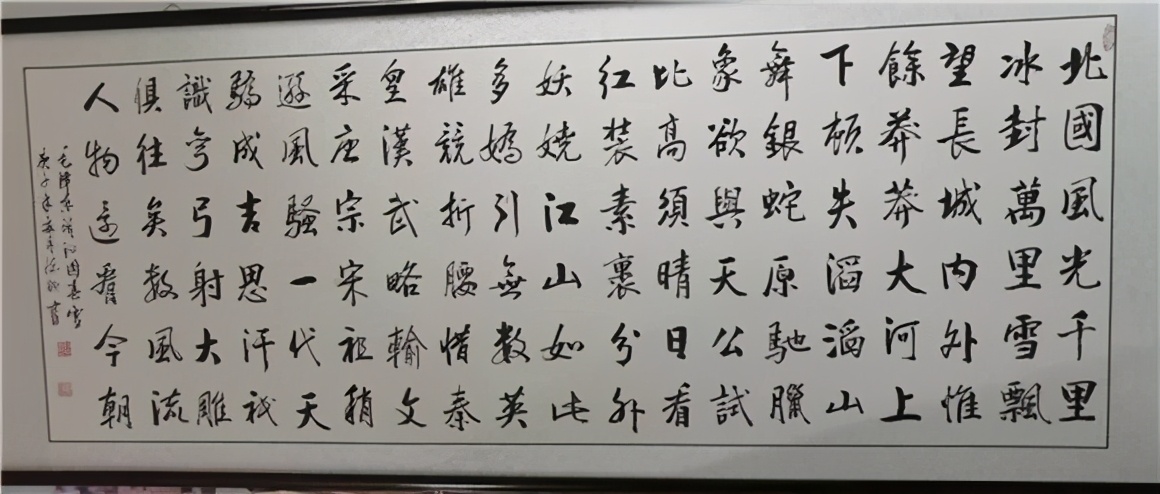 北國風光千里
冰封萬里雪飄
望長城內外惟
餘莽莽大河上
下頓失滔滔山
舞銀蛇原馳臘
象欲與天公試
比高須晴日看
紅裝素裹分外
妖嬈江山如此
多嬌引無數英
雄競折腰惜秦
皇漢武略輸文
采唐宗宋祖稍
遜風騷一代天
驕成吉思汗祇
識彎弓射大雕
俱往矣數風流
人物還看今朝
毛澤東詩沁園春雪
庚子年書